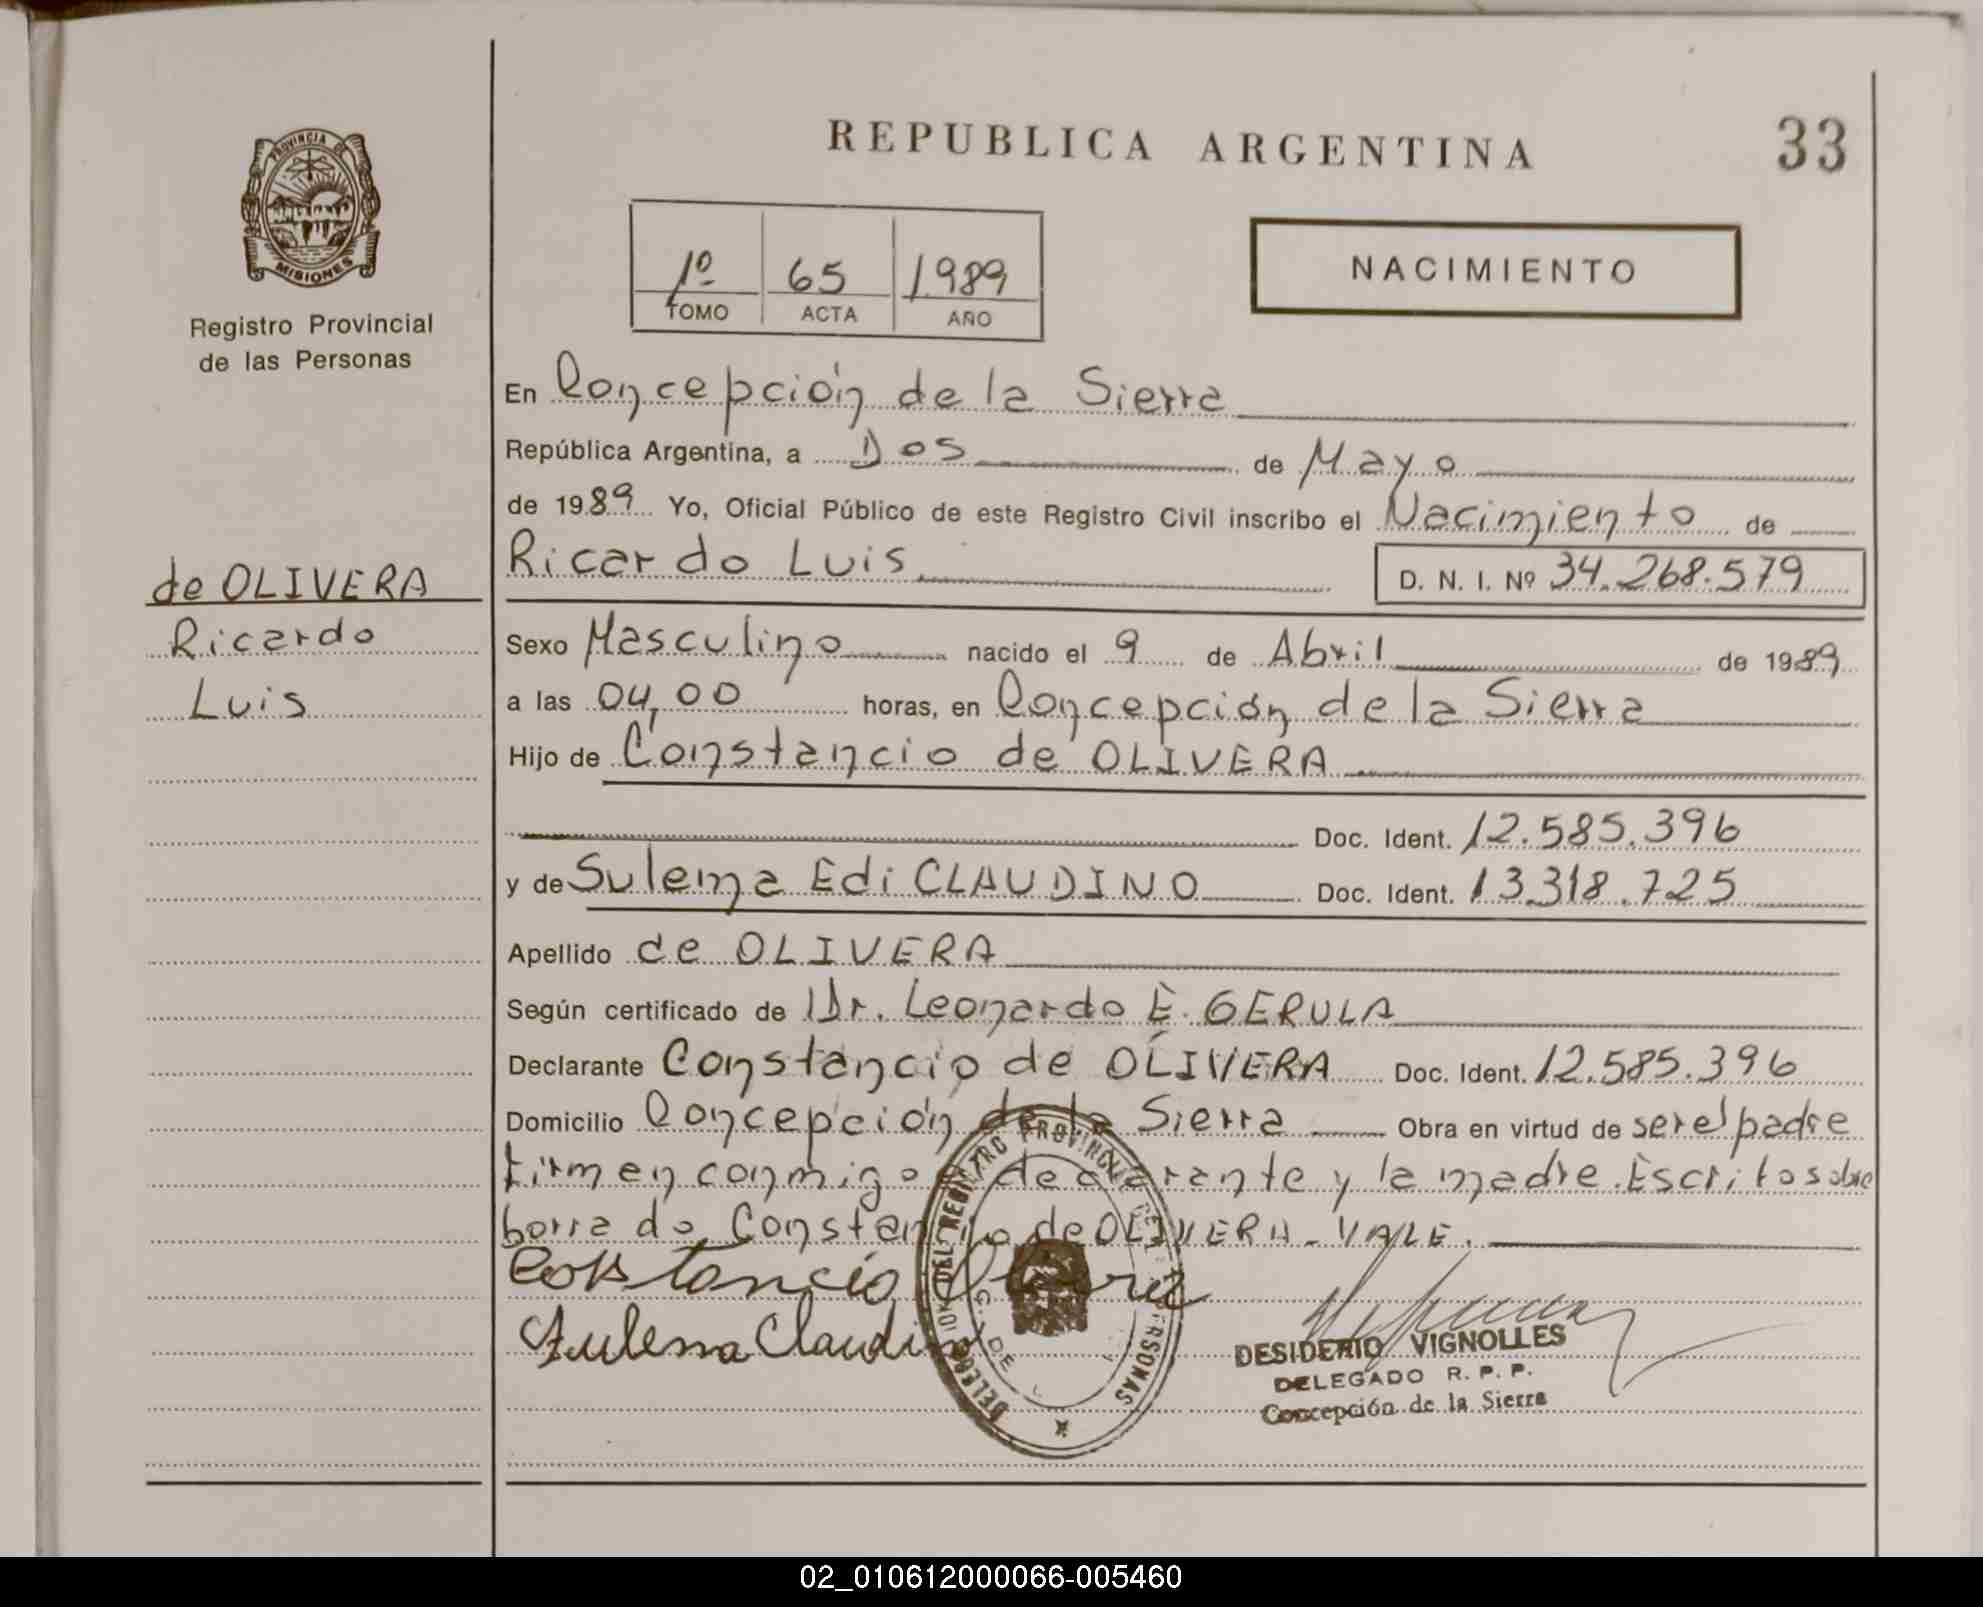 REPUBLICA ARGENTINA
33
PROVINCIA DE
MISIONES
Registro Provincial
de las Personas
1º 65 1989
TOMO ACTA AÑO
NACIMIENTO
En Concepción de la Sierra
República Argentina, a Dos de Mayo
de 1989 Yo, Oficial Público de este Registro Civil inscribo el Nacimiento de
Ricardo Luis
D. N. I. Nº 34.268.579
de OLIVERA
Ricardo
Luis
Sexo Masculino nacido el 9 de Abril de 1989
a las 04,00 horas, en Concepción de la Sierra
Hijo de Constancio de OLIVERA
Doc. Ident. 12.585.396
y de Sulema Edi CLAUDINO Doc. Ident. 13.318.725
Apellido de OLIVERA
Según certificado de Dr. Leonardo E. GERULA
Declarante Constancio de OLIVERA Doc. Ident. 12.585.396
Domicilio Concepción de la Sierra Obra en virtud de ser el padre
firmen conmigo declarante y la madre. Escrito sobre
borrado Constancio de OLIVERA - VALE.
Constancio Olivera
Sulema Claudino
DELEGACION DEL REGISTRO PROVINCIAL DE LAS PERSONAS
DESIDERIO VIGNOLLES
DELEGADO R. P. P.
Concepción de la Sierra
02_010612000066-005460